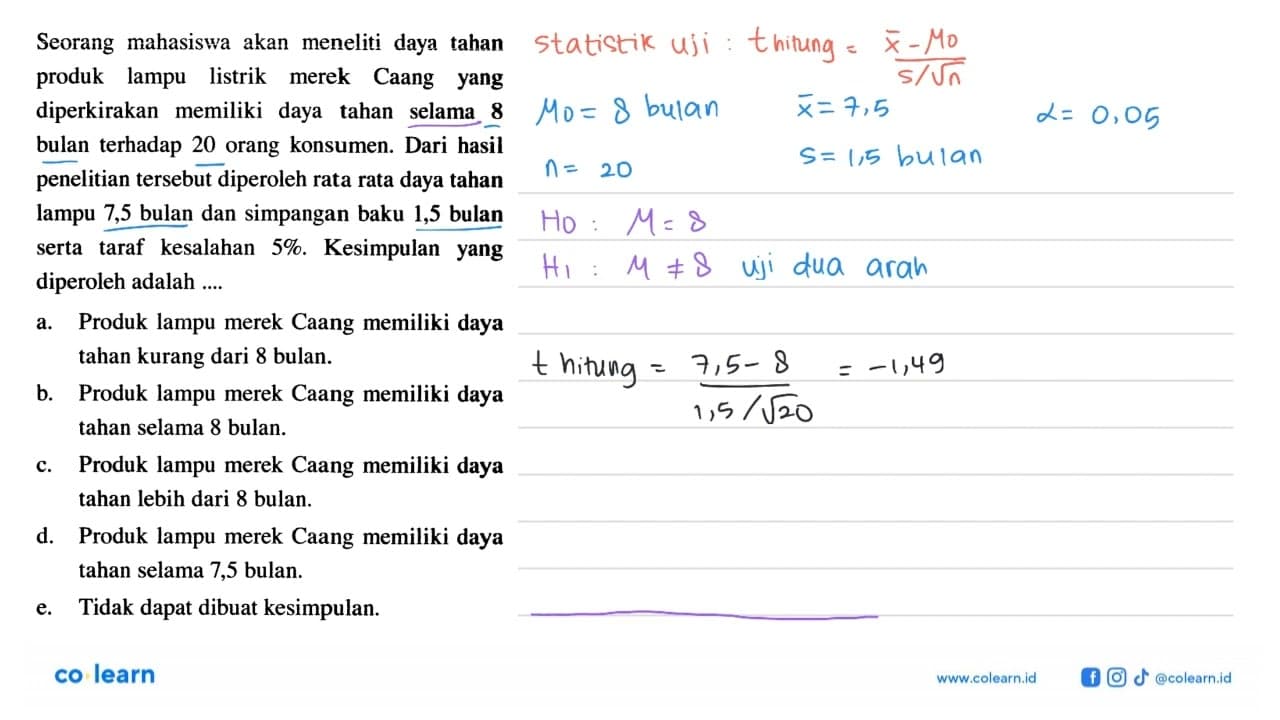 Seorang mahasiswa akan meneliti daya tahan
produk lampu listrik merek Caang yang
diperkirakan memiliki daya tahan selama 8
bulan terhadap 20 orang konsumen. Dari hasil
penelitian tersebut diperoleh rata rata daya tahan
lampu 7,5 bulan dan simpangan baku 1,5 bulan
serta taraf kesalahan 5%. Kesimpulan yang
diperoleh adalah ....
a. Produk lampu merek Caang memiliki daya
tahan kurang dari 8 bulan.
b. Produk lampu merek Caang memiliki daya
tahan selama 8 bulan.
c. Produk lampu merek Caang memiliki daya
tahan lebih dari 8 bulan.
d. Produk lampu merek Caang memiliki daya
tahan selama 7,5 bulan.
e. Tidak dapat dibuat kesimpulan.
statistik uji : t hitung = x̄ - μ0
s/√n
μ0 = 8 bulan x̄ = 7,5 α = 0,05
n = 20 s = 1,5 bulan
H0 : μ = 8
H1 : μ ≠ 8 uji dua arah
t hitung = 7,5 - 8 = -1,49
1,5/√20
co learn
www.colearn.id @colearn.id